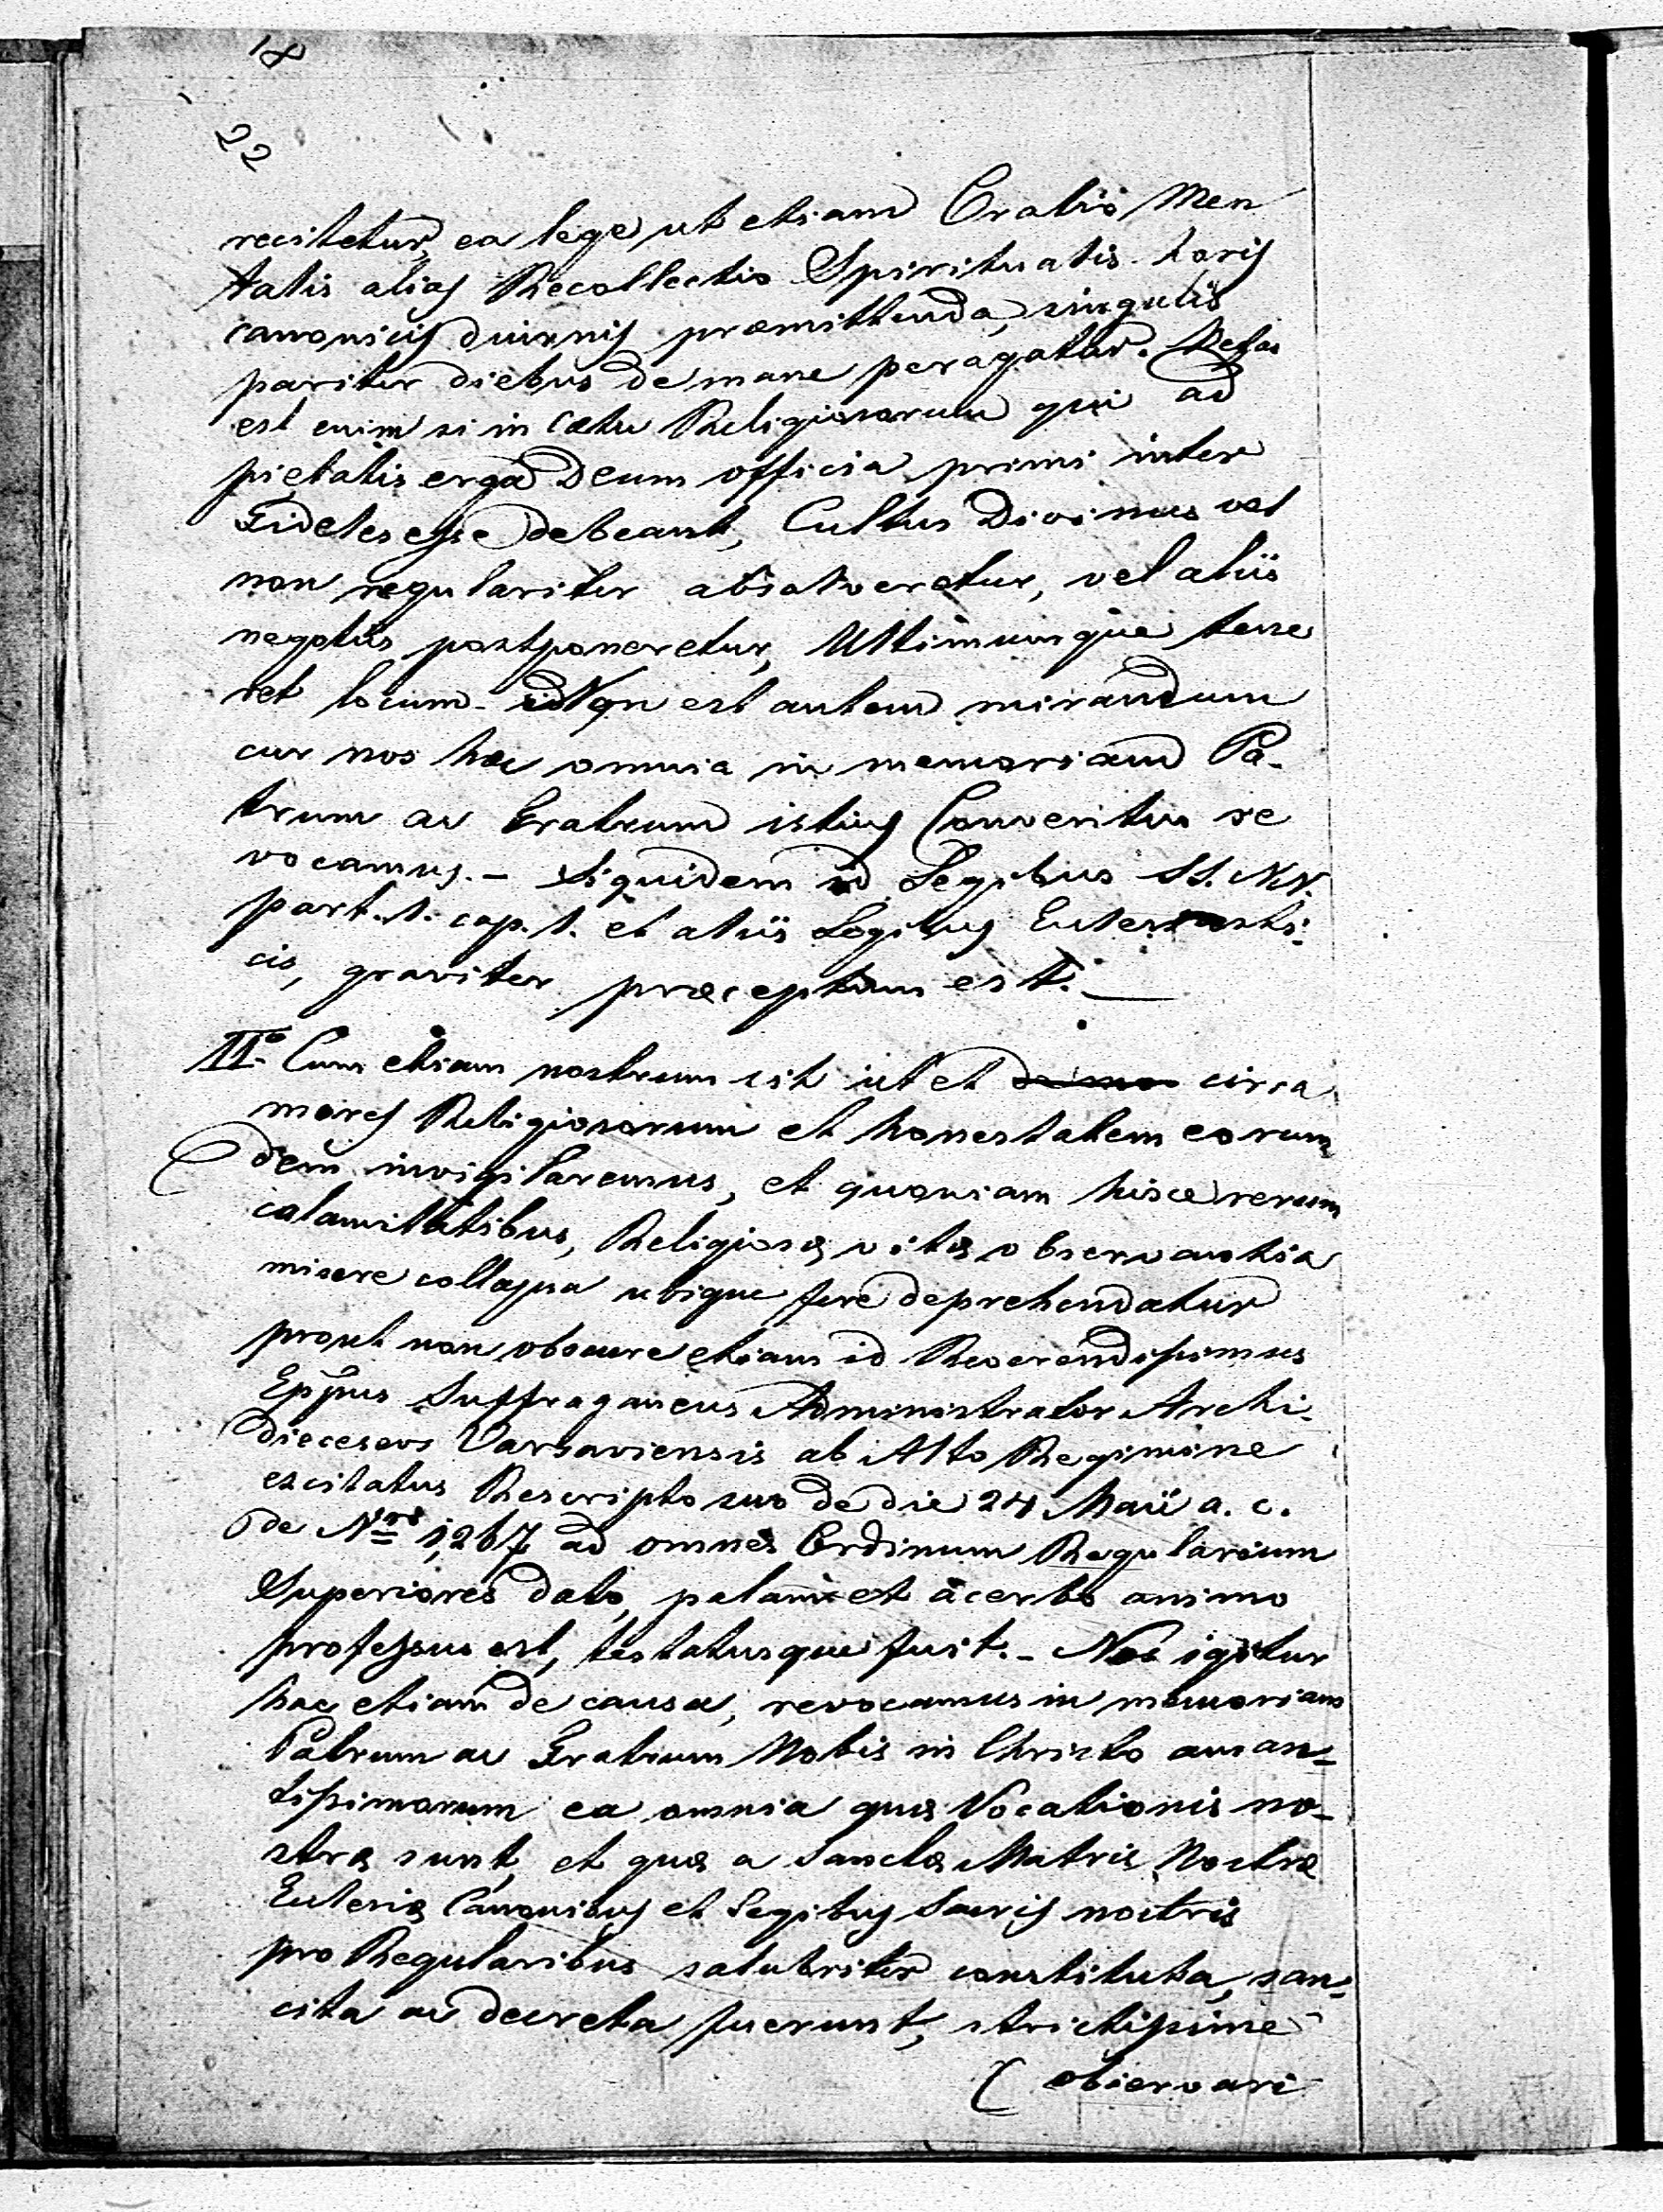 18
22
recitetur, ea lege, ut etiam Oratio Men
talis alias Recollectio Spiritualis horis
canonicis diurnis præmittenda, singulis
pariter diebus de mane peragatur. Nefas
est enim si in Cœtu Religiosorum qui ad
pietatis erga Deum officia primi inter
Fideles esse debeant, Cultus Divinus vel
non regulariter absolveretur, vel aliis
negotiis postponeretur, Ultimumque tene
ret locum. Non est autem mirandum
cur nos hæc omnia in memoriam Pa-
trum ac Fratrum istius Conventus re
vocamus. - Siquidem id Legibus SS. NN.
part. 1. cap. 1. et aliis Legibus Ecclesiasti-
cis, graviter præceptum est. —
II° Cum etiam nostrum sit ut et circa
mores Religiosorum et honestatem eorum
dem invigilaremus, et quoniam hisce rerum
calamitatibus, Religiosæ vitæ observantia
misere collapsa ubique fere deprehendatur
prout non obscure etiam id Reverendissimus
Eppus Suffraganeus Administrator Archi-
dieceseos Varsaviensis ab Alto Regimine
excitatus Rescripto suo de die 24 Maii a. c.
de Nro 1,267 ad omnes Ordinum Regularium
Superiores dato, palam et acerbo animo
professus est, testatusque fuit. - Nos igitur
hac etiam de causa, revocamus in memoriam
Patrum ac Fratrum Nobis in Christo aman-
tissimorum ea omnia quæ Vocationis no-
stræ sunt, et quæ a Sanctæ Matris Nostræ
Ecclesiæ Canonibus et Legibus Sacris nostris
pro Regularibus salubriter constituta, san-
cita ac decreta fuerunt, strictissime
observari